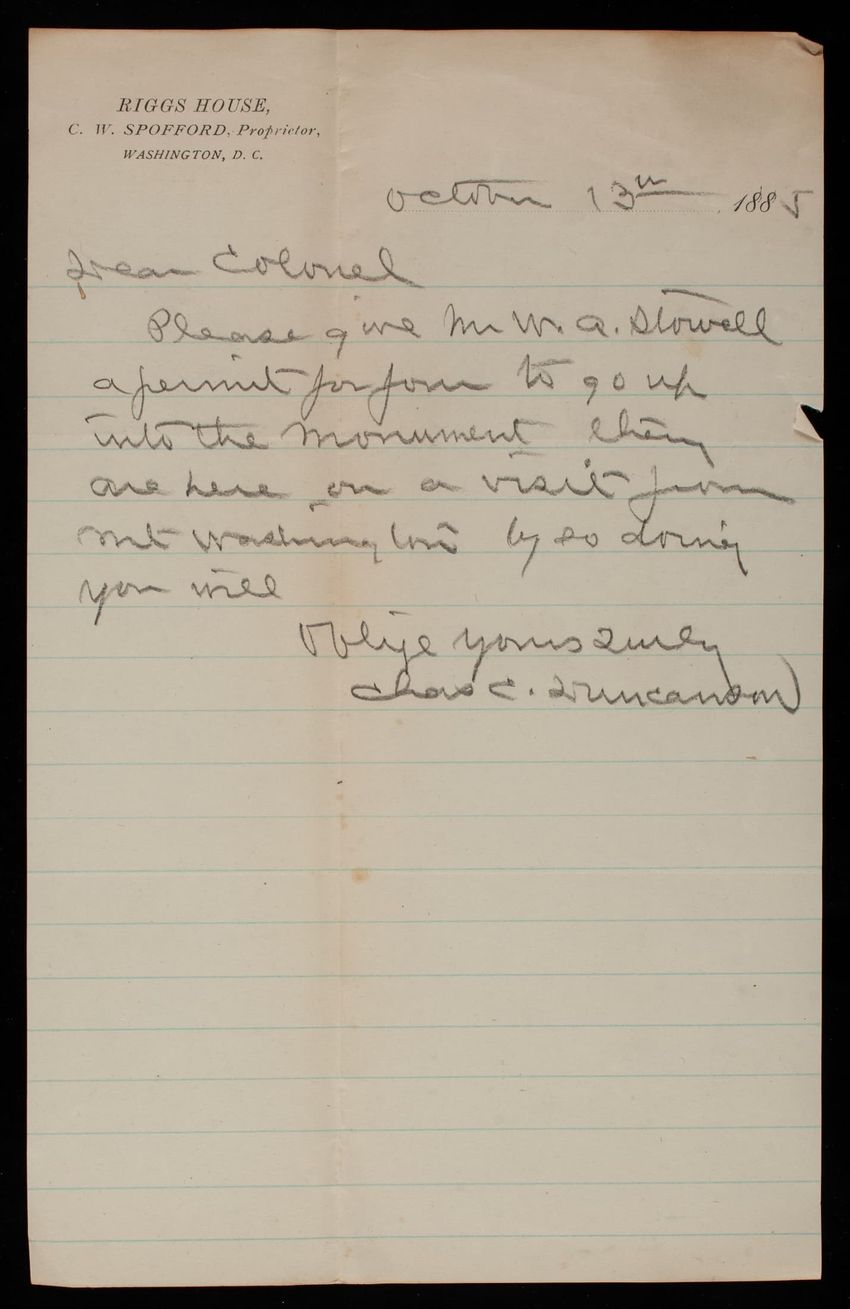 RIGGS HOUSE,
C. W. SPOFFORD, Proprietor,
WASHINGTON, D. C.
October 13th 1885
Dear Colonel
Please give Mr W. A. Stowell
a permit for four to go up
into the Monument they
are here on a visit from
Mt Washington by so doing
you will
Oblige yours Truly
Chas C. Duncanson